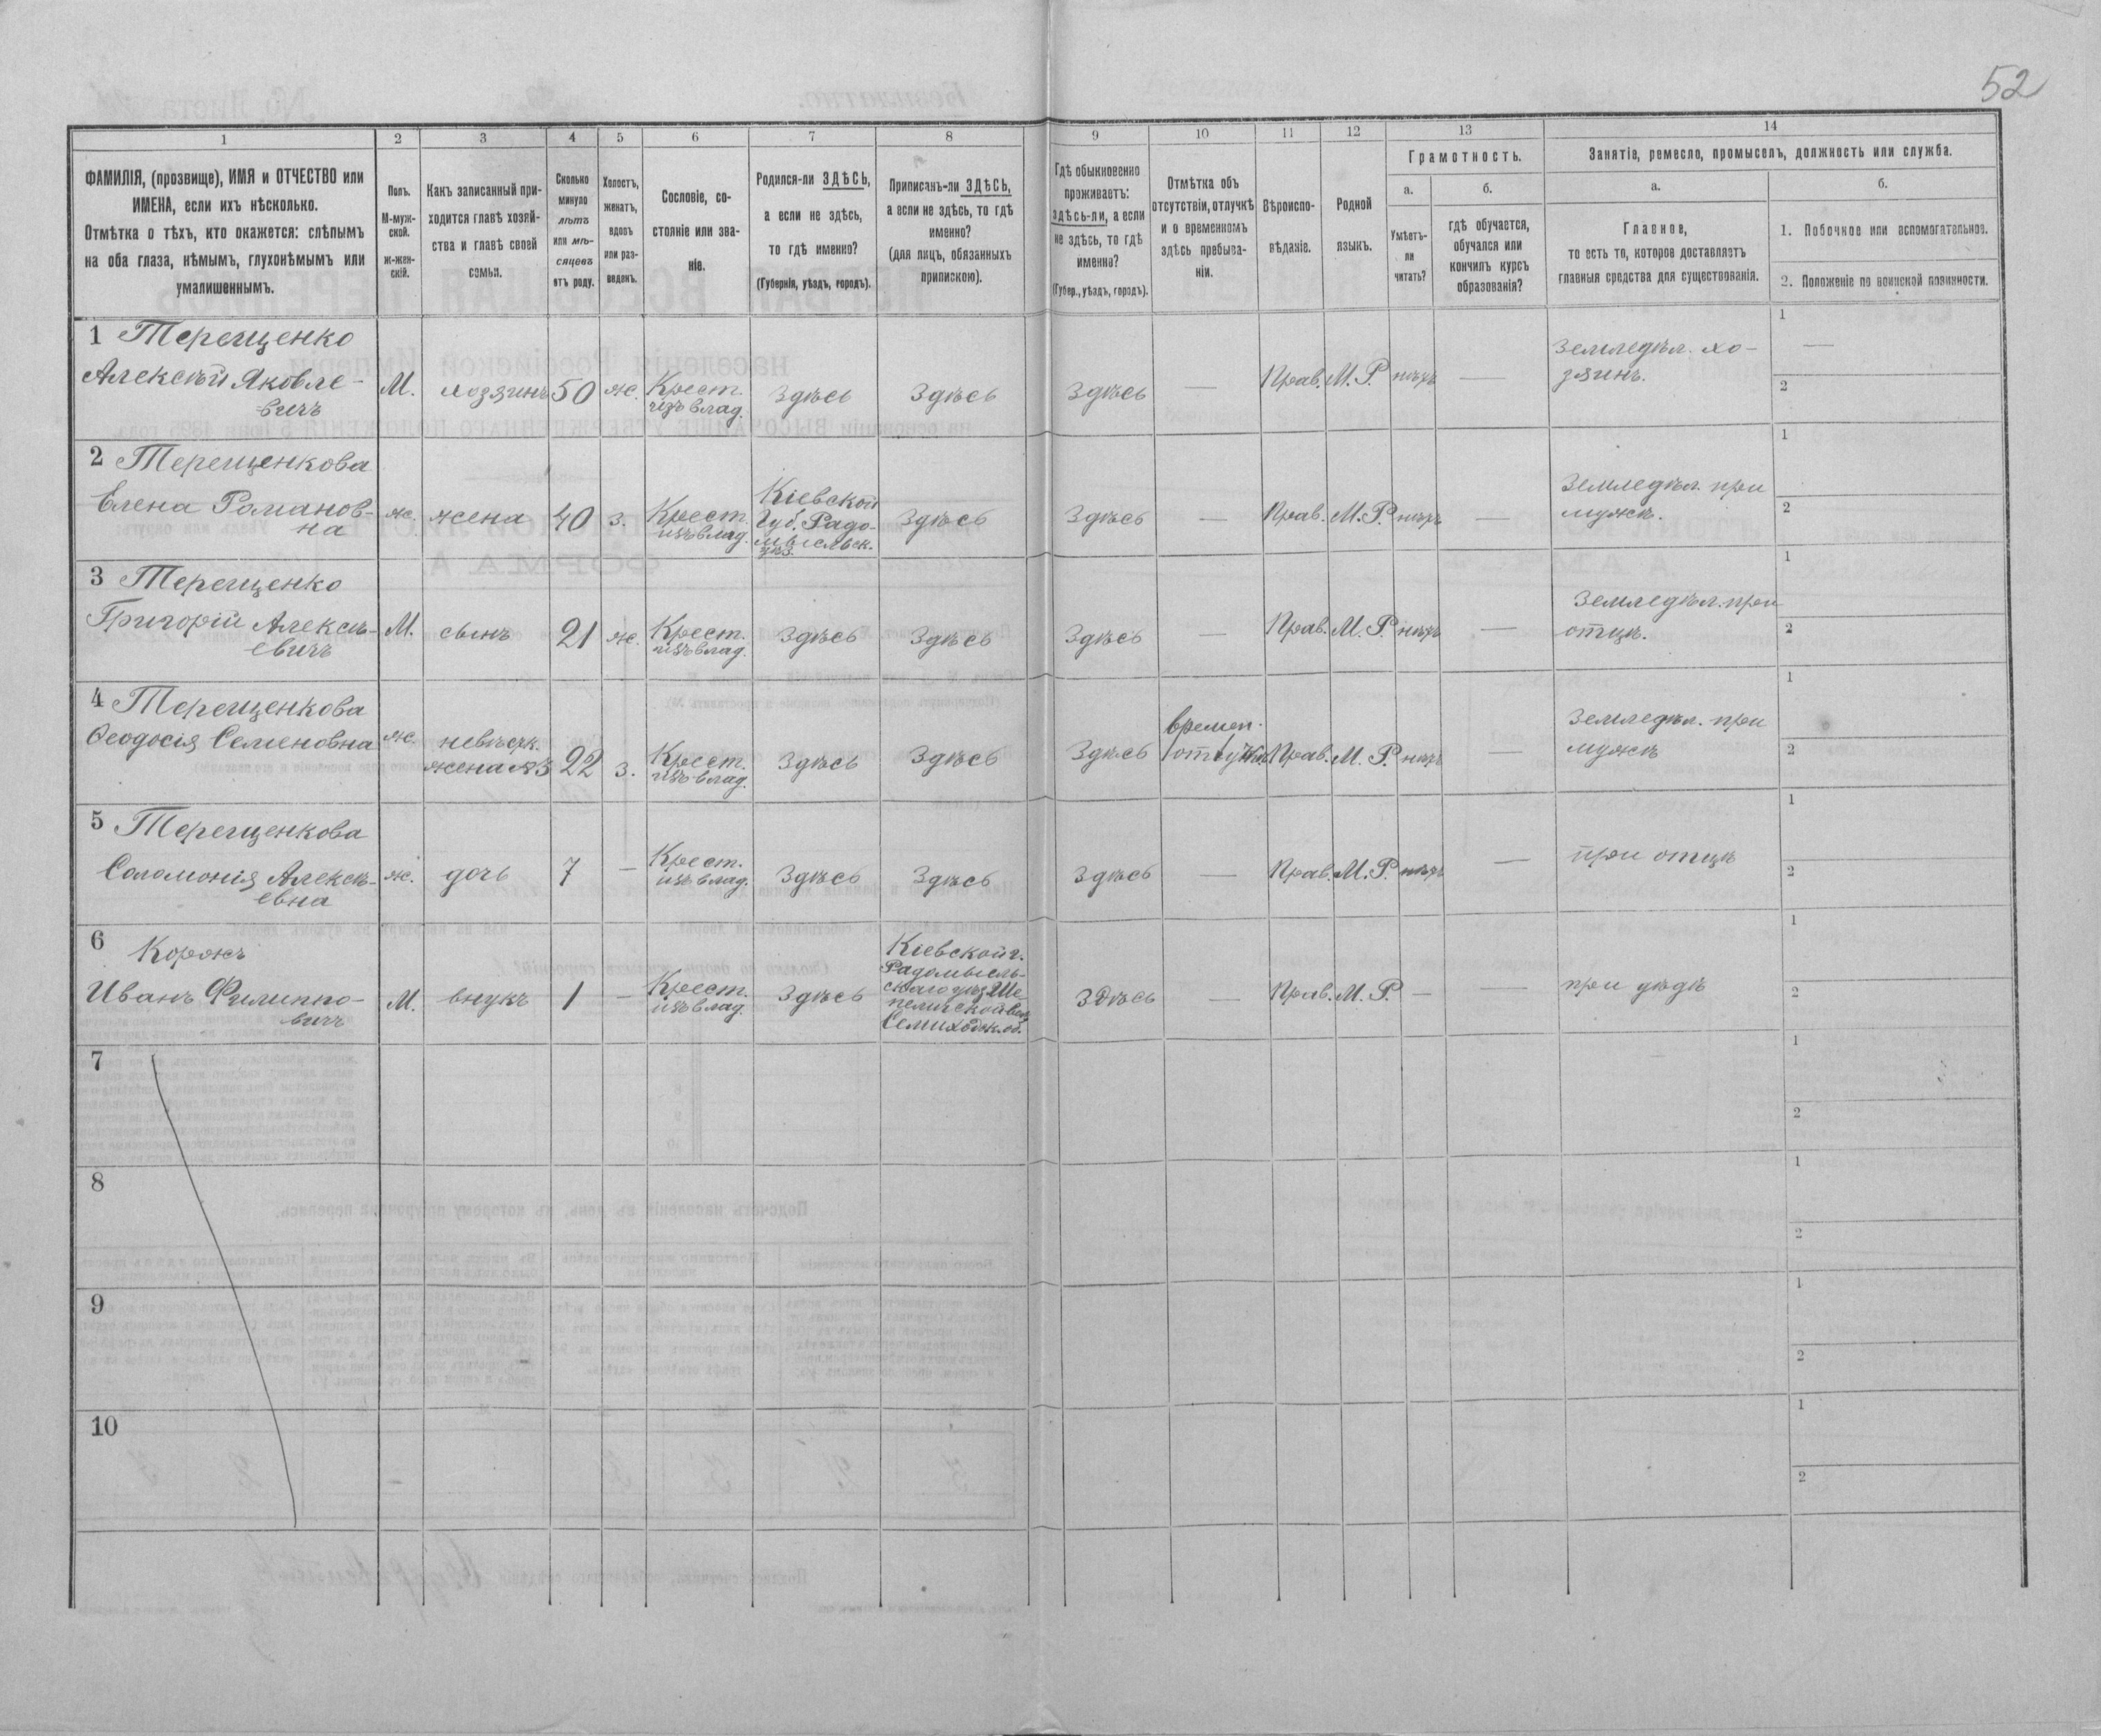 52
1
2
3
4
5
6
7
8
9
10
11
12
13
14
ФАМИЛІЯ, (прозвище), ИМЯ и ОТЧЕСТВО или
ИМЕНА, если ихъ нѣсколько.
Отмѣтка о тѣхъ, кто окажется: слѣпымъ
на оба глаза, нѣмымъ, глухонѣмымъ или
умалишеннымъ.
Полъ.
М-муж-
ской.
ж-жен-
скій.
Какъ записанный при-
ходится главѣ хозяй-
ства и главѣ своей
семьи.
Сколько
минуло
лѣтъ
или мѣ-
сяцевъ
отъ роду.
Холостъ,
женатъ,
вдовъ
или раз-
веденъ.
Сословіе, со-
стояніе или зва-
ніе.
Родился-ли ЗДѢСЬ,
а если не здѣсь,
то гдѣ именно?
(Губернія, уѣздъ, городъ).
Приписанъ-ли ЗДѢСЬ,
а если не здѣсь, то гдѣ
именно?
(для лицъ, обязанныхъ
припискою).
Гдѣ обыкновенно
проживаетъ:
здѣсь-ли, а если
не здѣсь, то гдѣ
именно?
(Губер., уѣздъ, городъ).
Отмѣтка объ
отсутствіи, отлучкѣ
и о временномъ
здѣсь пребыва-
ніи.
Вѣроиспо-
вѣданіе.
Родной
языкъ.
Грамотность.
а.
Умѣетъ-
ли
читать?
б.
гдѣ обучается,
обучался или
кончилъ курсъ
образованія?
Занятіе, ремесло, промыселъ, должность или служба.
а.
Главное,
то есть то, которое доставляетъ
главныя средства для существованія.
б.
1. Побочное или вспомогательное.
2. Положеніе по воинской повинности.
1 Терещенко
Алексѣй Яковле-
вичъ
М.
хозяинъ
50
ж.
Крест.
изъ влад.
Здѣсь
Здѣсь
Здѣсь
—
Прав.
М. Р.
нѣтъ
—
Земледѣл. хо-
зяинъ.
1
—
2
2 Терещенкова
Елена Романов-
на
ж.
жена
40
з.
Крест.
изъ влад.
Кіевской
Губ. Радо-
мысльск.
уѣз.
Здѣсь
Здѣсь
—
Прав.
М. Р.
нѣтъ
—
Земледѣл. при
мужѣ.
1
2
3 Терещенко
Григорій Алексѣ-
евичъ
М.
сынъ
21
ж.
Крест.
изъ влад.
Здѣсь
Здѣсь
Здѣсь
—
Прав.
М. Р.
нѣтъ
—
Земледѣл. при
отцѣ.
1
2
4 Терещенкова
Ѳеодосія Семеновна
ж.
невѣстк.
жена №3
22
з.
Крест.
изъ влад.
Здѣсь
Здѣсь
Здѣсь
времен.
отлучк.
Прав.
М. Р.
нѣтъ
—
Земледѣл. при
мужѣ
1
2
5 Терещенкова
Соломонія Алексѣ-
евна
ж.
дочь
7
—
Крест.
изъ влад.
Здѣсь
Здѣсь
Здѣсь
—
Прав.
М. Р.
нѣтъ
—
при отцѣ
1
2
6 Коржъ
Иванъ Филиппо-
вичъ
М.
внукъ
1
—
Крест.
изъ влад.
Здѣсь
Кіевской г.
Радомысль-
скаго уѣз. Ше-
пелиской вол.
Семиходск. об.
Здѣсь
—
Прав.
М. Р.
—
—
при дѣдѣ
1
2
7
1
2
8
1
2
9
1
2
10
1
2